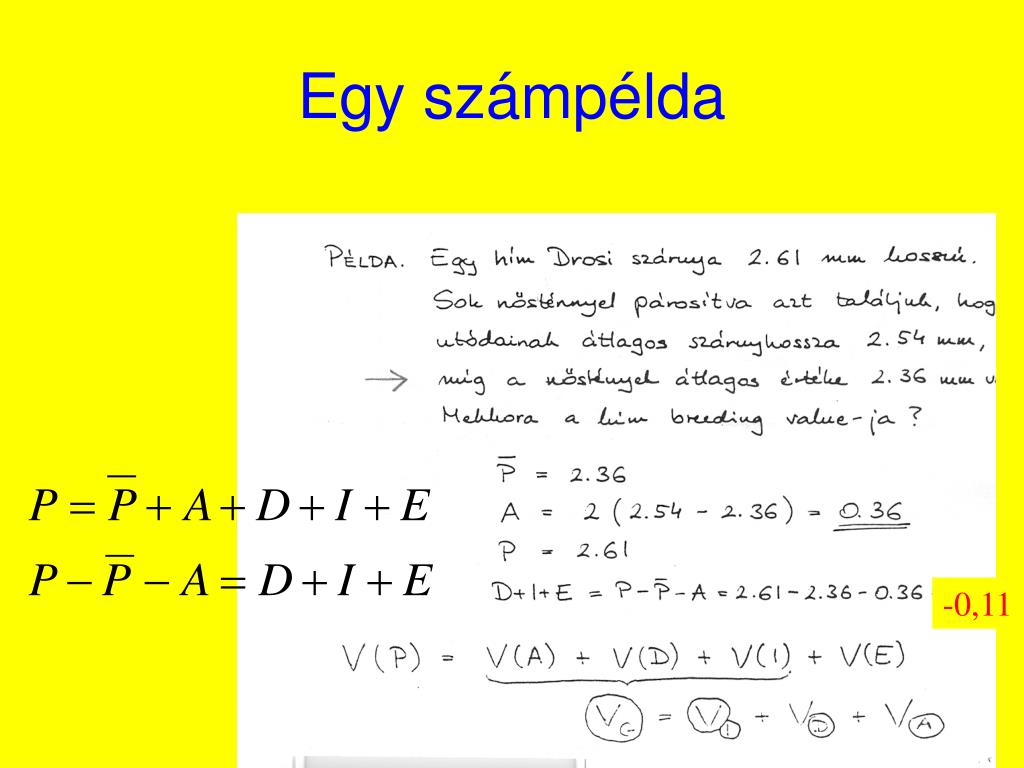 Egy számpélda
PÉLDA. Egy hím Drosi szárnya 2.61 mm hosszú.
Sok nősténnyel párosítva azt találjuk, hog
utódainak átlagos szárnyhossza 2.54 mm,
míg a nőstények átlagos értéke 2.36 mm v
Mekkora a hím breeding value-ja ?
P̅ = 2.36
A = 2 ( 2.54 - 2.36 ) = 0.36
P = 2.61
D+I+E = P-P̅-A = 2.61-2.36-0.36
-0,11
P = P̅ + A + D + I + E
P − P̅ − A = D + I + E
V(P) = V(A) + V(D) + V(I) + V(E)
V_G = V_I + V_D + V_A